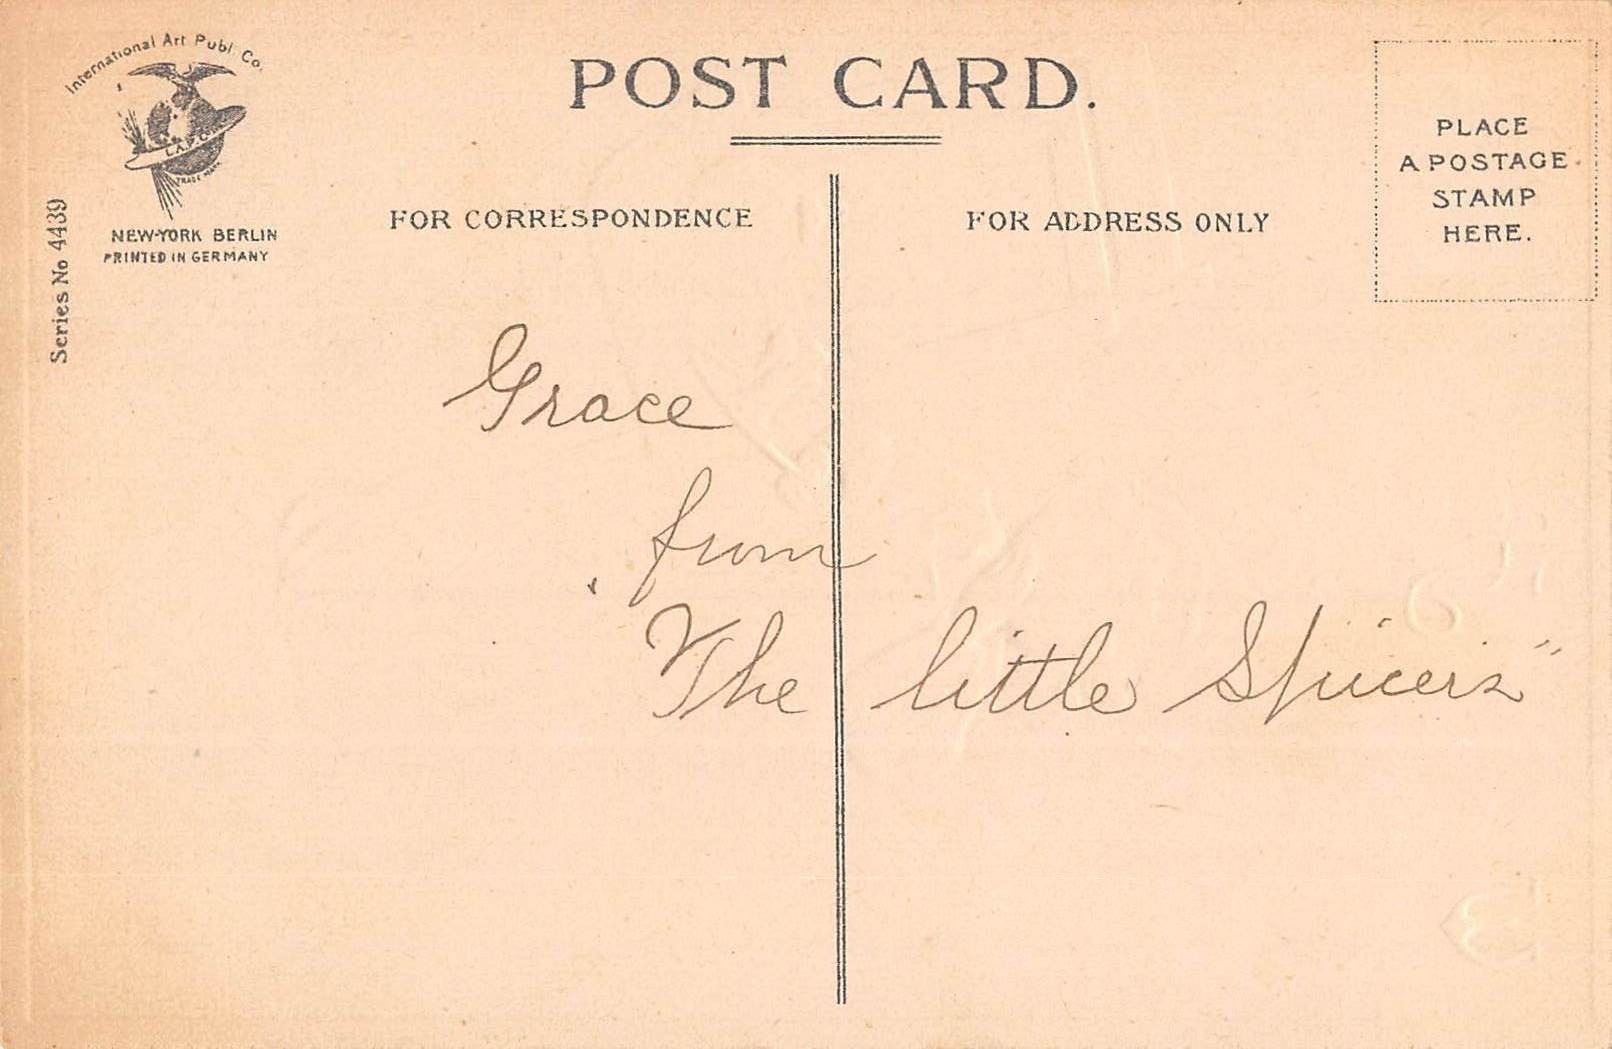 International Art Publ. Co.
I.A.P.Co.
TRADE MARK
NEW-YORK BERLIN
PRINTED IN GERMANY
Series No 4439
POST CARD.
FOR CORRESPONDENCE
FOR ADDRESS ONLY
PLACE
A POSTAGE
STAMP
HERE.
Grace
from
The little Spicers"